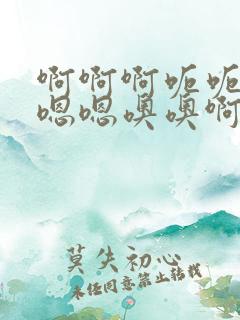 啊啊啊呃呃
嗯嗯噢噢啊
莫失初心
未经同意禁止转载